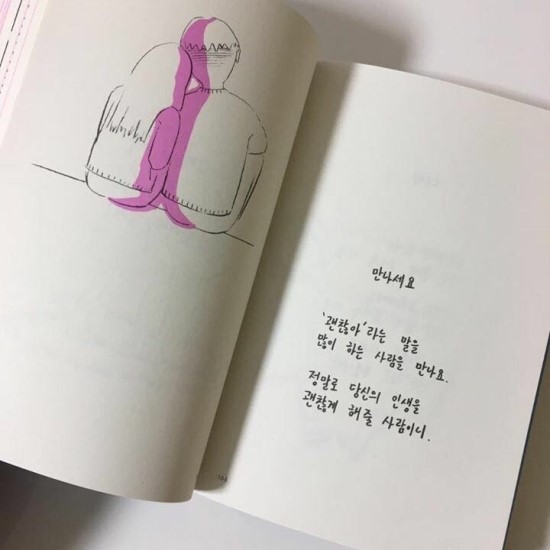 만나세요
'괜찮아'라는 말을
많이 하는 사람을 만나요.
정말로 당신의 인생을
괜찮게 해줄 사람이니.